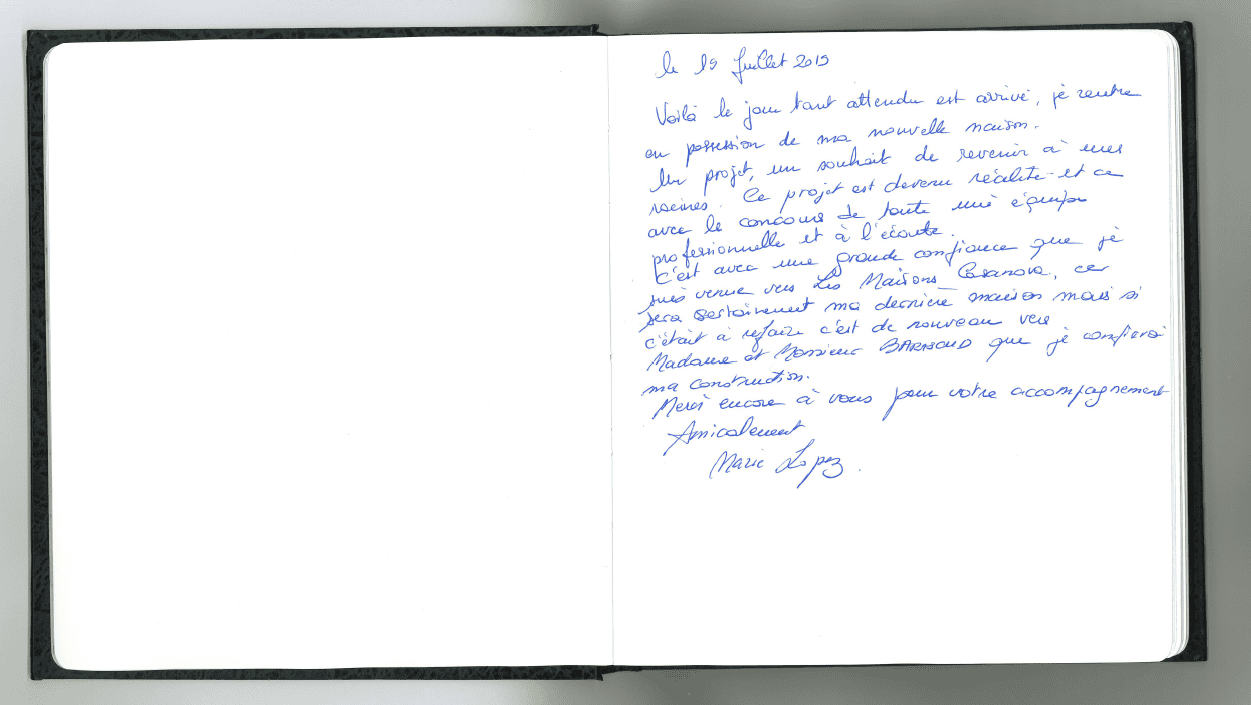 le 19 Juillet 2019
Voilà le jour tant attendu est arrivé, je rentre
en possession de ma nouvelle maison.
Un projet, un souhait de revenir à mes
racines. Ce projet est devenu réalité et ce
avec le concours de toute une équipe
professionnelle et à l'écoute.
C'est avec une grande confiance que je
suis venue vers Les Maisons Casanova, car
sera certainement ma dernière maison mais si
c'était à refaire c'est de nouveau vers
Madame et Monsieur que je confierai
ma construction.
Merci encore à vous pour votre accompagnement
Amicalement
Marie Lopez.